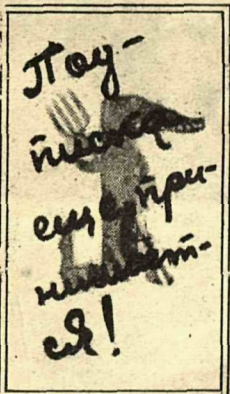 Под-
писка
еще при-
нимает-
ся!